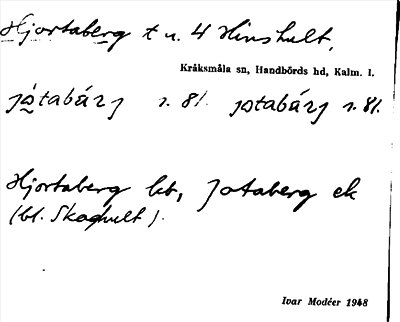 Hjortaberg t u. 4 Hinshult,
Kråksmåla sn, Handbörds hd, Kalm. l.
jo̱tabárj s. 81. jotabárj s. 81.
Hjortaberg kb, Jotaberg ek
(bl. Skoghult).
Ivar Modéer 1948